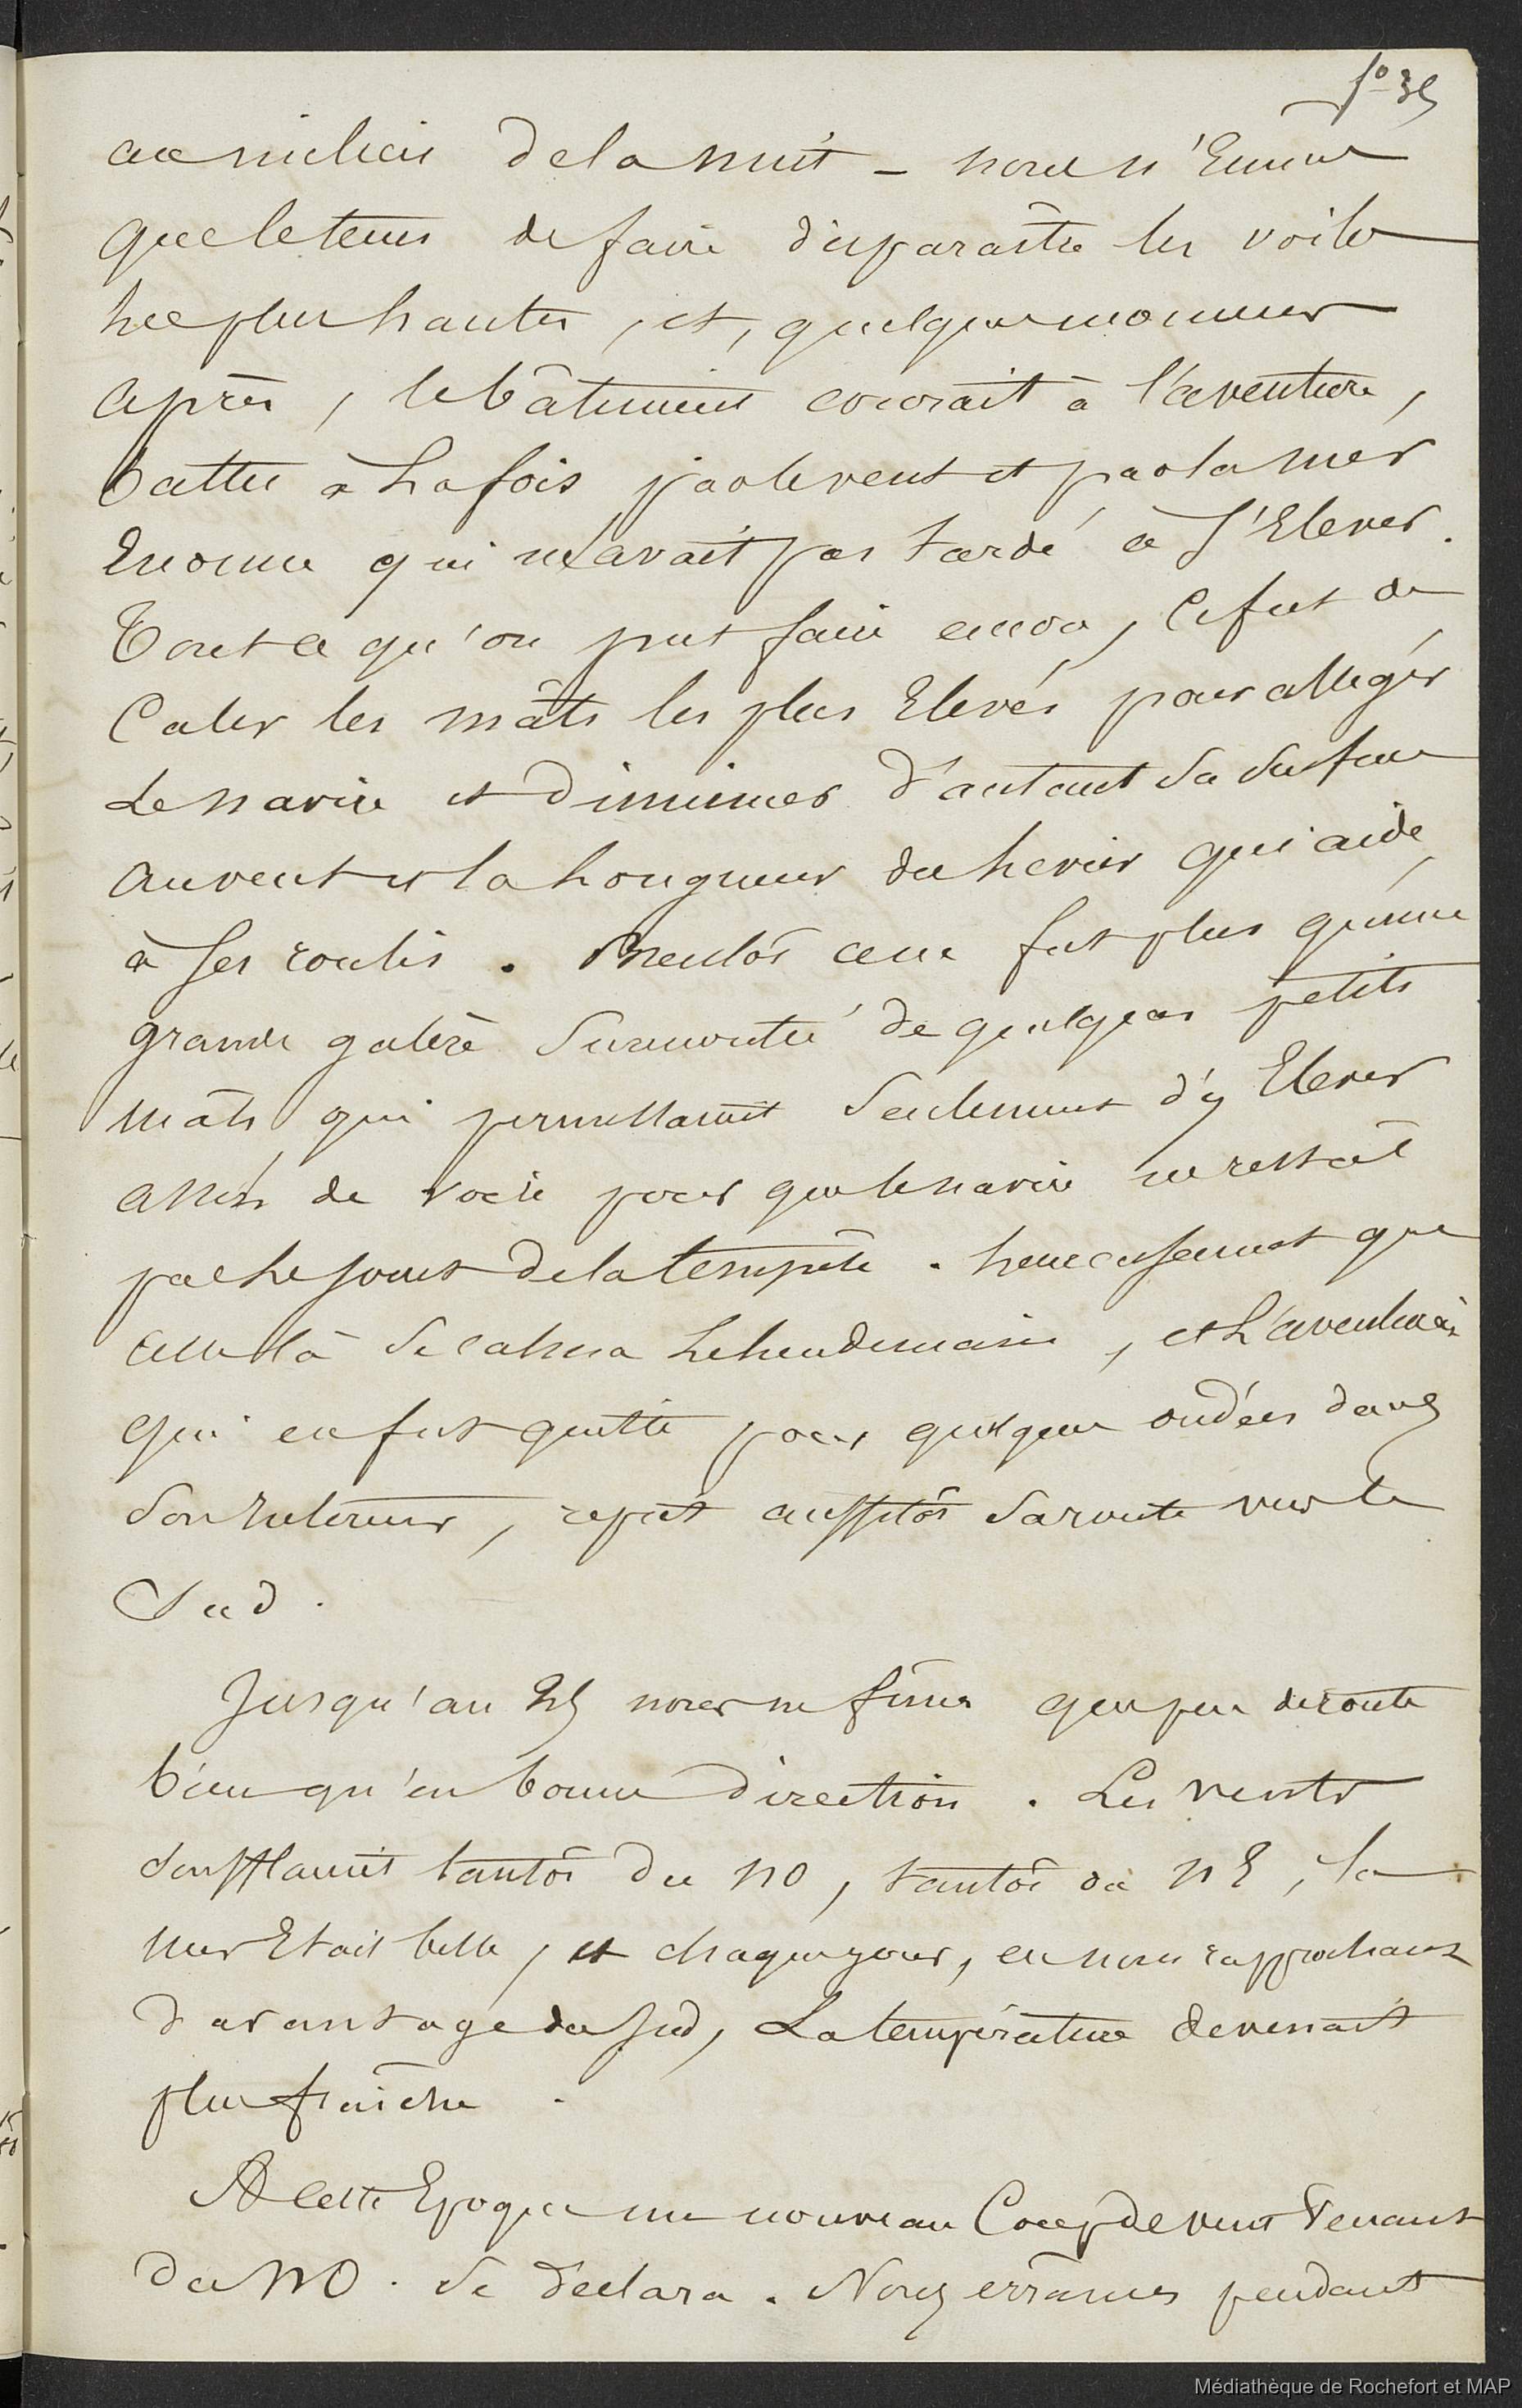 fo 35
au milieu de la nuit - nous n'eûmes
que le tems de faire disparaître les voiles
les plus hautes, et, quelques momens
après, le bâtiment courait à l'aventure,
battu à la fois par le vent et par la mer
Enorme qui n'avait pas tardé à s'Elever.
Tout ce qu'on put faire encore, ce fut de
Caler les mâts les plus Elevés pour alléger
le navire et diminuer d'autant sa surface
au vent et la longueur du levier qui aide
à ses roulis. Bientôt ce ne fut plus qu'une
grande galère surmontée de quelques petits
mâts qui permettaient seulement d'y Elever
assez de voile pour que le navire ne restât
pas le jouet de la tempête. heureusement que
celle là se calma le lendemain, et L'aventure
qui en fut quitte pour quelques ondées dans
son Interieur, reprit aussitôt sa route vers le
Sud.
Jusqu'au 25 nous ne fimes que peu de route
bien qu'en bonne direction. Les vents
soufflaient tantôt du NO, tantôt du NE, la
mer Etait belle, et chaque jour, en nous rapprochant
d'avantage du Sud, La température devenait
plus fraîche.
A cette Epoque un nouveau Coup de vent Venant
du NO. se déclara. Nous errâmes pendant
Médiathèque de Rochefort et MAP